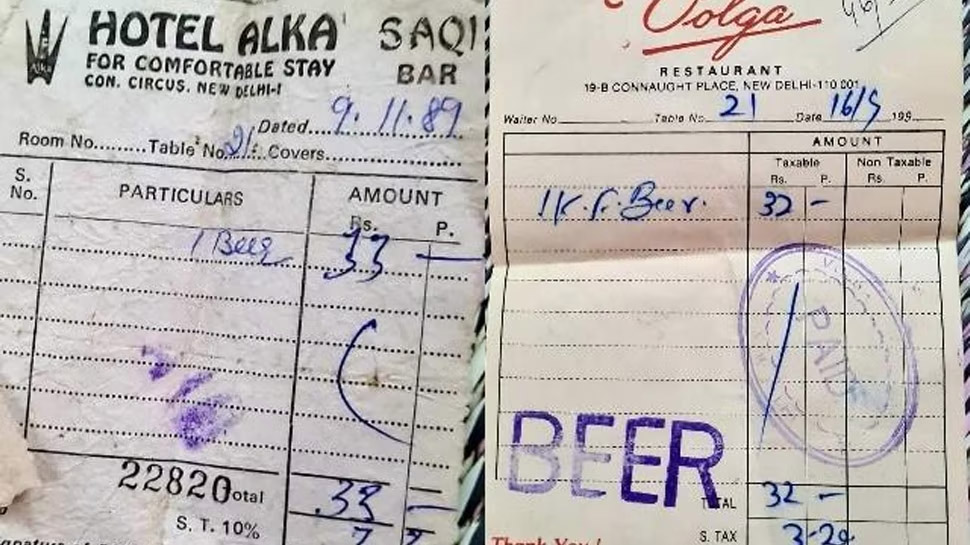 HOTEL ALKA SAQI
FOR COMFORTABLE STAY BAR
CON. CIRCUS. NEW DELHI-1
Dated....9.11.89
Room No.........Table No.21.Covers...............
S. No. PARTICULARS AMOUNT
Rs. P.
1 Beer 33 —
22820 otal 33 —
S. T. 10%
Volga
RESTAURANT
19-B CONNAUGHT PLACE, NEW DELHI-110 001
Waiter No. Table No. 21 Date 16/5 199
AMOUNT
Taxable Non Taxable
Rs. P. Rs. P.
1 K.F. Beer. 32 -
PAID
BEER
TAL 32 -
S. TAX 3-20
Thank You!